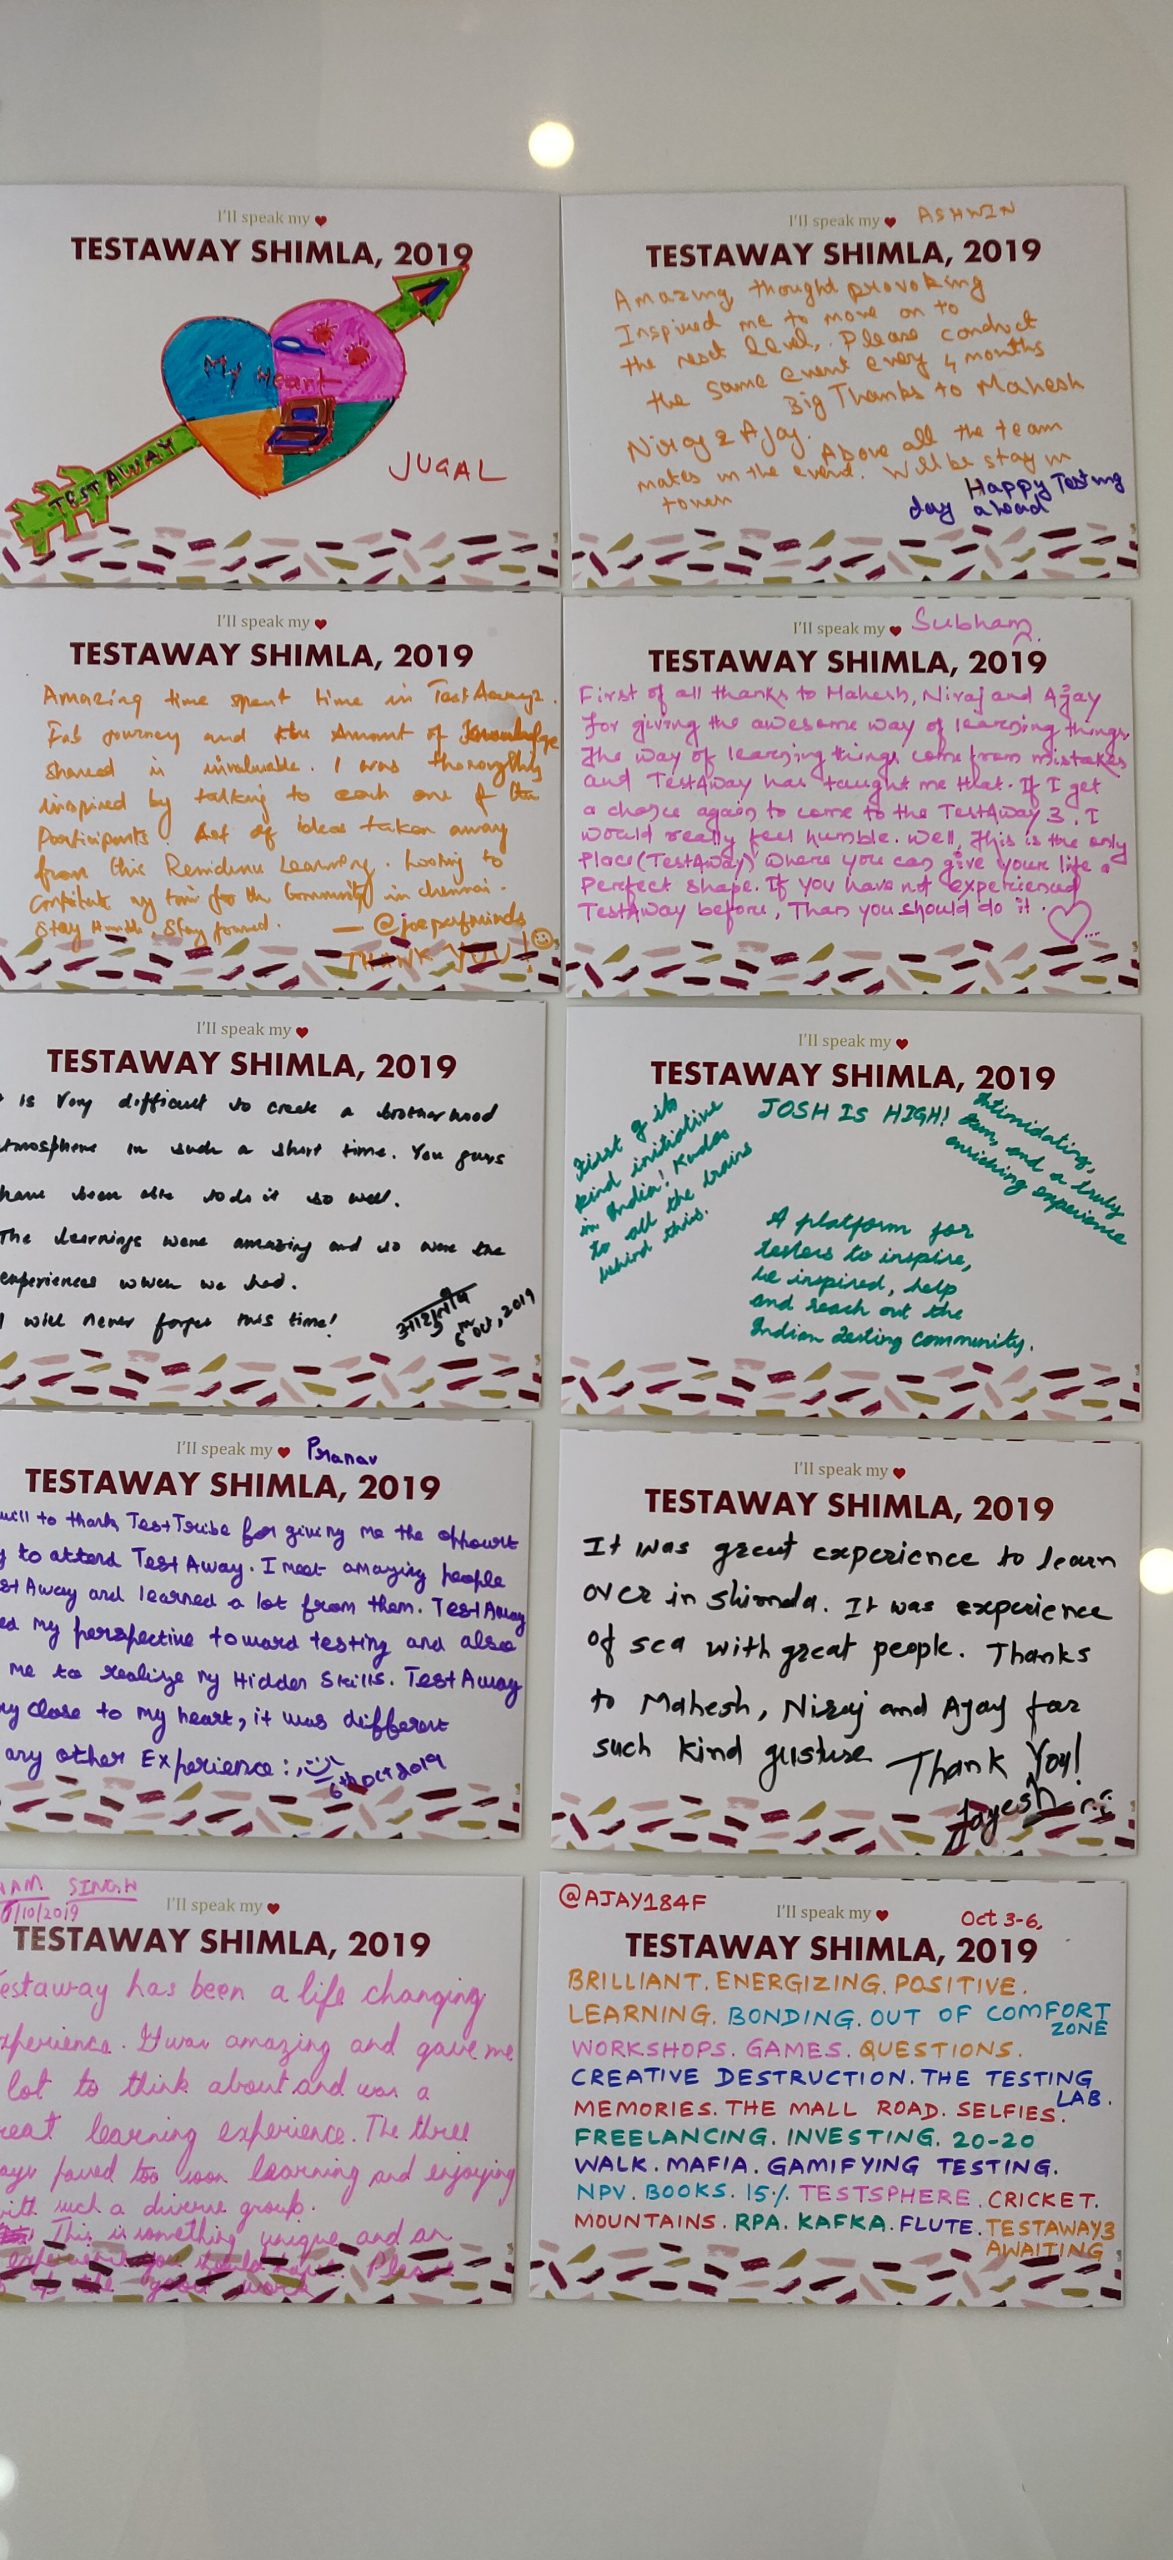 I'll speak my
TESTAWAY SHIMLA, 2019
My Heart
TESTAWAY
JUGAL
I'll speak my
ASHWIN
TESTAWAY SHIMLA, 2019
Amazing thought provoking
Inspired me to move on to
the next level. Please conduct
the same event every 4 months
Big Thanks to Mahesh
Niraj & Ajay. Above all the team
makes in the event. Will be stay in
touch
Happy Testing
day ahead
I'll speak my
TESTAWAY SHIMLA, 2019
Amazing time spent time in TestAway2.
Fab journey and the Amount of Knowledge
shared is invaluable. I was thoroughly
inspired by talking to each one of the
Participants. of ideas taken away
from this Learning. Looking to
my for the Community in chennai.
Stay Humble, Stay
— @joeperfminds
THANK YOU!
I'll speak my
Subham
TESTAWAY SHIMLA, 2019
First of all thanks to Mahesh, Niraj and Ajay
for giving the awesome way of learning things.
The way of learning things come from mistakes
and TestAway has taught me that. If I get
a chance again to come to the TestAway 3. I
would really feel humble. Well, This is the only
Place (TestAway) where you can give your life a
Perfect shape. If you have not experienced
TestAway before, Than you should do it.
I'll speak my
TESTAWAY SHIMLA, 2019
is Very difficult to create a brotherhood
tmosphere in such a short time. You guys
have been able to do it so well.
The learnings were amazing and so were the
experiences which we had.
I will never forget this time!
6th Oct, 2019
I'll speak my
TESTAWAY SHIMLA, 2019
First of its
kind initiative
in India! Kudos
to all the brains
behind this.
JOSH IS HIGH!
Intimidating,
fun, and a truly
enriching experience
A platform for
testers to inspire,
be inspired, help
and reach out the
Indian testing community.
I'll speak my
Pranav
TESTAWAY SHIMLA, 2019
will to thank TestTribe for giving me the oppourt
y to attend TestAway. I meet amazing people
st Away and learned a lot from them. TestAway
ed my perspective toward testing and also
me to realize my Hidden Skills. TestAway
ry close to my heart, it was different
any other Experience :)
6th Oct 2019
I'll speak my
TESTAWAY SHIMLA, 2019
It was great experience to learn
over in shimla. It was experience
of sea with great people. Thanks
to Mahesh, Niraj and Ajay for
such kind gusture
Thank You!
Jayesh
AM SINGH
6/10/2019
I'll speak my
TESTAWAY SHIMLA, 2019
estaway has been a life changing
xperience. It was amazing and gave me
lot to think about and was a
reat learning experience. The three
ays passed too soon learning and enjoying
with such a diverse group.
This is something unique and an
experience you
up the good work
@AJAY184F
I'll speak my
Oct 3-6,
TESTAWAY SHIMLA, 2019
BRILLIANT. ENERGIZING. POSITIVE.
LEARNING. BONDING. OUT OF COMFORT
ZONE
WORKSHOPS. GAMES. QUESTIONS.
CREATIVE DESTRUCTION. THE TESTING
LAB.
MEMORIES. THE MALL ROAD. SELFIES.
FREELANCING. INVESTING. 20-20
WALK. MAFIA. GAMIFYING TESTING.
NPV. BOOKS. 15%. TESTSPHERE. CRICKET.
MOUNTAINS. RPA. KAFKA. FLUTE. TESTAWAY3
AWAITING